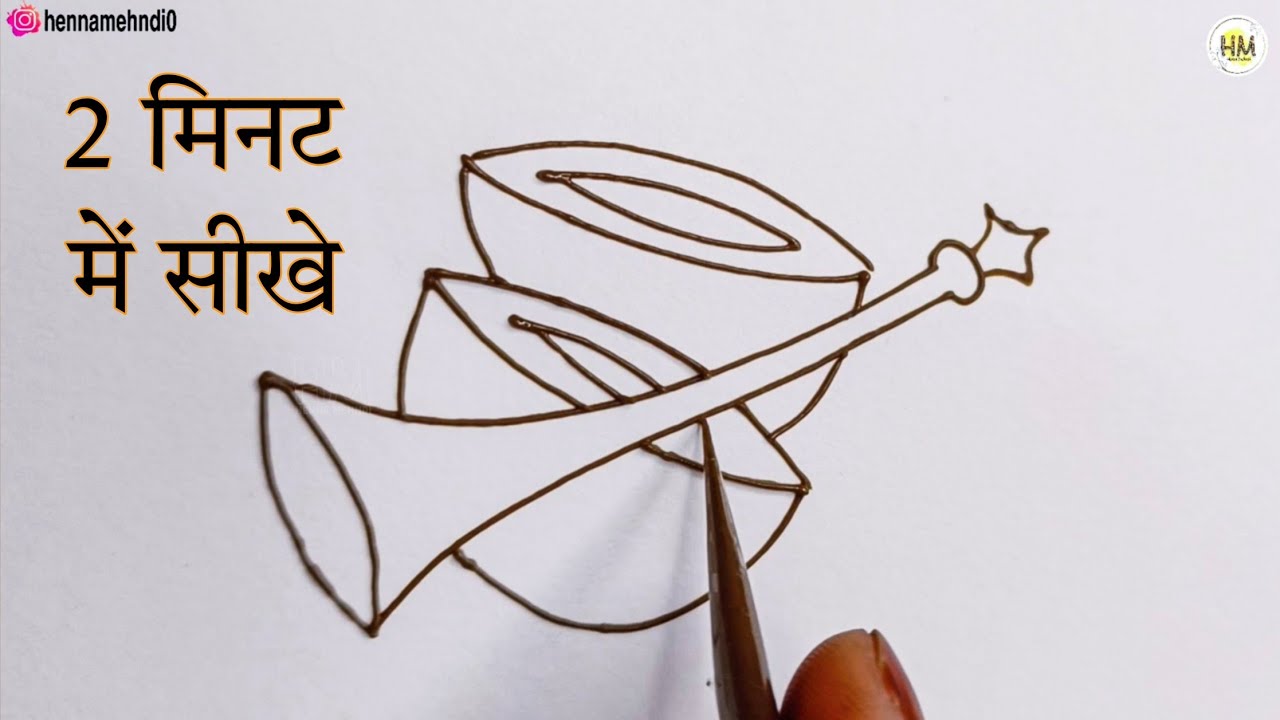 hennamehndi0
HM
2 मिनट
में सीखे